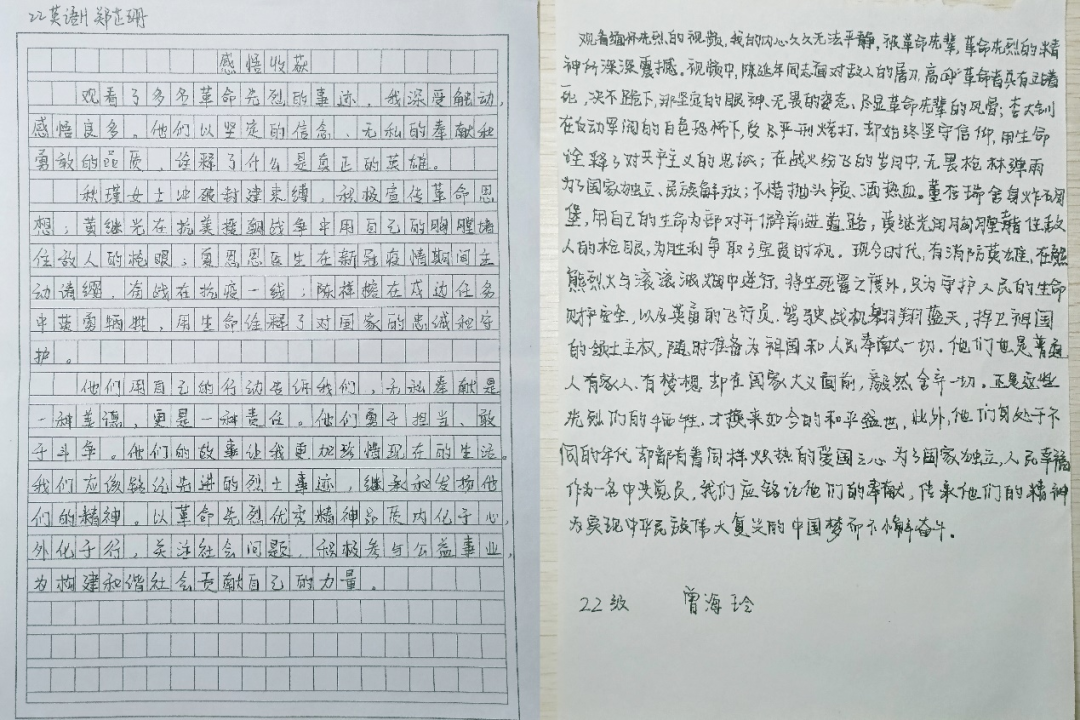 22英语 郑芷珊
感悟收获
观看了多名革命先烈的事迹，我深受触动，
感悟良多。他们以坚定的信念、无私的奉献和
勇敢的品质，诠释了什么是真正的英雄。
秋瑾女士冲破封建束缚，积极宣传革命思
想；黄继光在抗美援朝战争中用自己的胸膛堵
住敌人的枪眼；夏思思医生在新冠疫情期间主
动请缨，奋战在抗疫一线；陈祥榕在戍边任务
中英勇牺牲，用生命诠释了对国家的忠诚和守
护。
他们用自己的行动告诉我们，无私奉献是
一种美德，更是一种责任。他们勇于担当、敢
于斗争。他们的故事让我更加珍惜现在的生活。
我们应该铭记先进的烈士事迹，继承和发扬他
们的精神。以革命先烈优秀精神品质内化于心，
外化于行，关注社会问题，积极参与公益事业，
为构建和谐社会贡献自己的力量。
观看缅怀先烈的视频，我的内心久久无法平静，被革命先辈，革命先烈的精
神所深深震撼。视频中，陈延年同志面对敌人的屠刀，高呼"革命者只有站着
死，决不跪下，那坚定的眼神、无畏的姿态、尽显革命先辈的风骨；李大钊
在反动军阀的白色恐怖下，受尽严刑拷打，却始终坚守信仰，用生命
诠释了对共产主义的忠诚；在战火纷飞的岁月中，无畏枪林弹雨
为了国家独立、民族解放；不惜抛头颅、洒热血。董存瑞舍身炸碉
堡，用自己的生命为部对开辟前进道路；黄继光用胸膛堵住敌
人的枪眼，为胜利争取了宝贵时机。现今时代，有消防英雄，在熊
熊烈火与滚滚浓烟中逆行，将生死置之度外，只为守护人民的生命
财产安全，以及英勇的飞行员，驾驶战机翱翔蓝天，捍卫祖国
的领土主权，随时准备为祖国和人民奉献一切。他们也是普通
人有家人、有梦想，却在国家大义面前，毅然舍弃一切。正是这些
先烈们的牺牲，才换来如今的和平盛世，此外，他们身处于不
同的年代却都有着同样炽热的爱国之心为了国家独立，人民幸福
作为一名中共党员，我们应铭记他们的奉献，传承他们的精神
为实现中华民族伟大复兴的中国梦而不懈奋斗。
22级 曾海玲